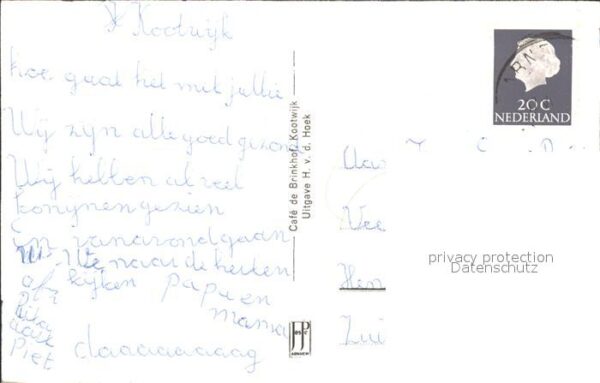 Kootwijk
hoe gaat het met jullie
Wij zijn alle goed gezond
Wij hebben al veel
konijnen gezien
en vanavond gaan
We naar de herten
kijken papa en
mama
Piet daaaaaaaag
Café de Brinkhof, Kootwijk
Uitgave H. v. d. Hoek
JosPé
ARNHEM
ARN
20 C
NEDERLAND
Aa
Vee
privacy protection
Datenschutz
Hen
Zui